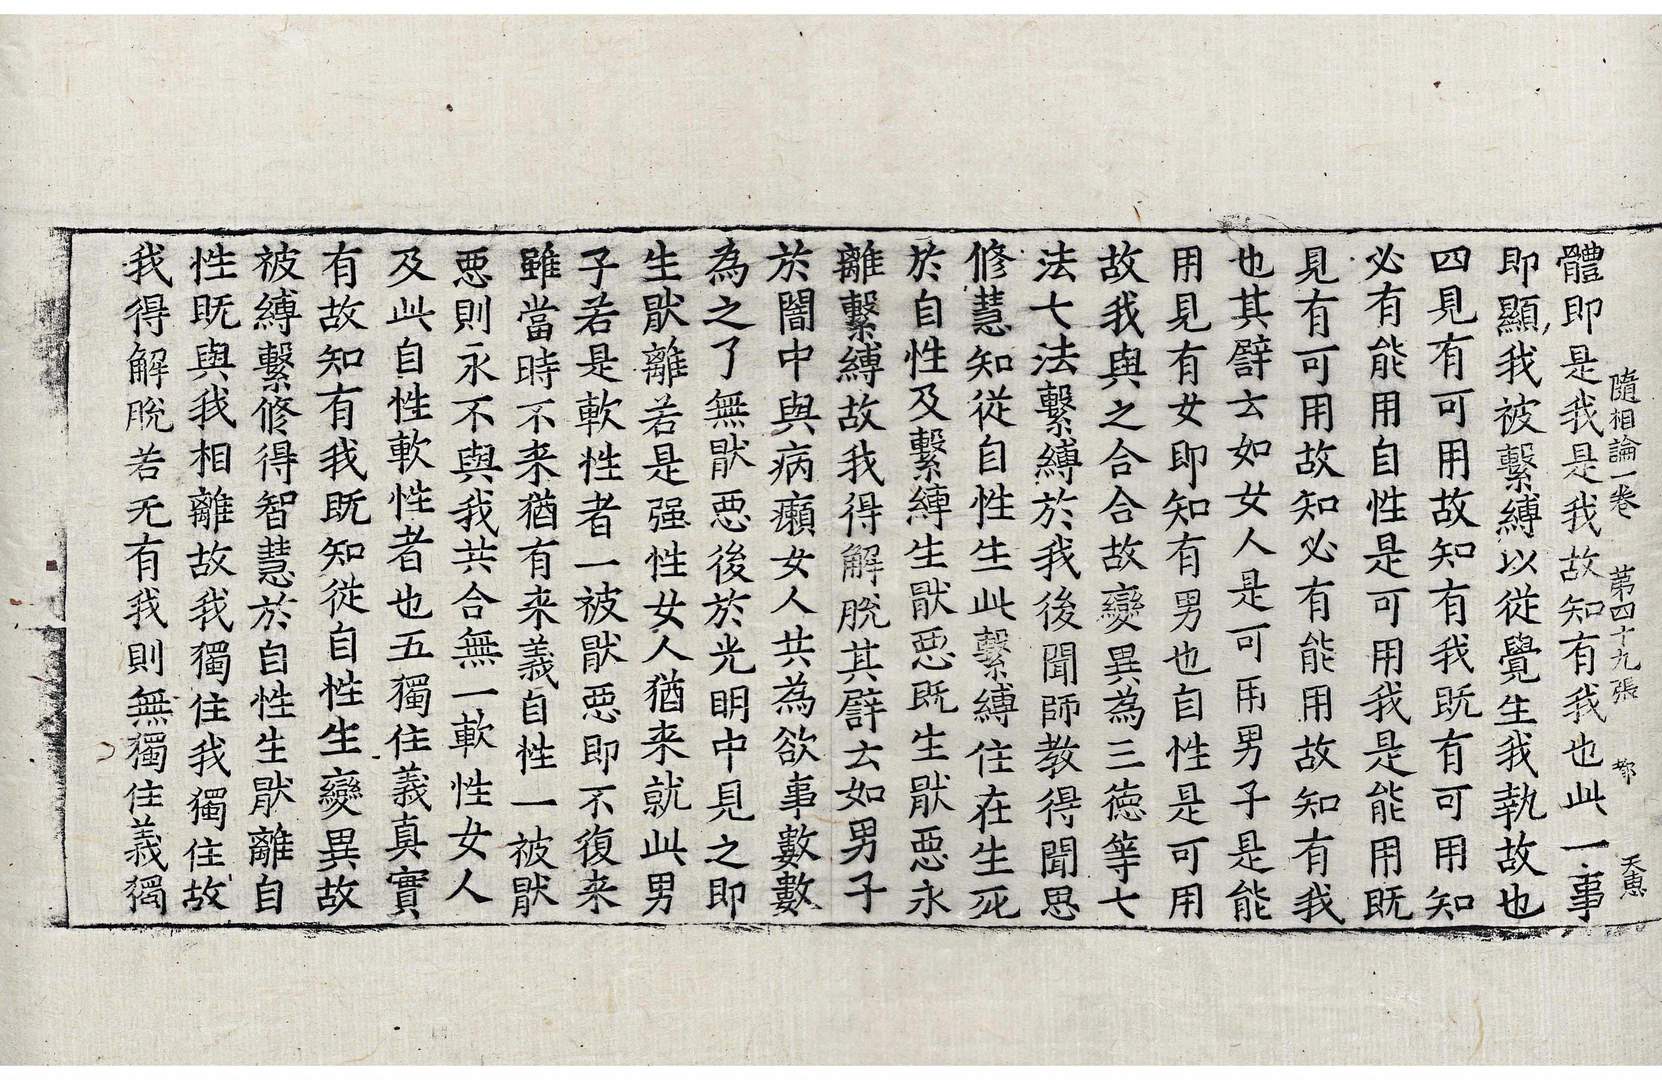 體即是我是我故知有我也此一事
隨相論一卷 第四十九張 都 天惠
即顯我被繫縛以從覺生我執故也
四見有可用故知有我既有可用知
必有能用自性是可用我是能用既
見有可用故知必有能用故知有我
也其譬云如女人是可用男子是能
用見有女即知有男也自性是可用
故我與之合合故變異為三德等七
法七法繫縛於我後聞師教得聞思
修慧知從自性生此繫縛住在生死
於自性及繫縛生猒惡既生猒惡永
離繫縛故我得解脫其譬云如男子
於闇中與病癩女人共為欲事數數
為之了無猒惡後於光明中見之即
生猒離若是强性女人猶来就此男
子若是軟性者一被猒惡即不復来
雖當時不来猶有来義自性一被猒
惡則永不與我共合無一軟性女人
及此自性軟性者也五獨住義真實
有故知有我既知從自性生變異故
被縛繫修得智慧於自性生猒離自
性既與我相離故我獨住我獨住故
我得解脫若无有我則無獨住義獨